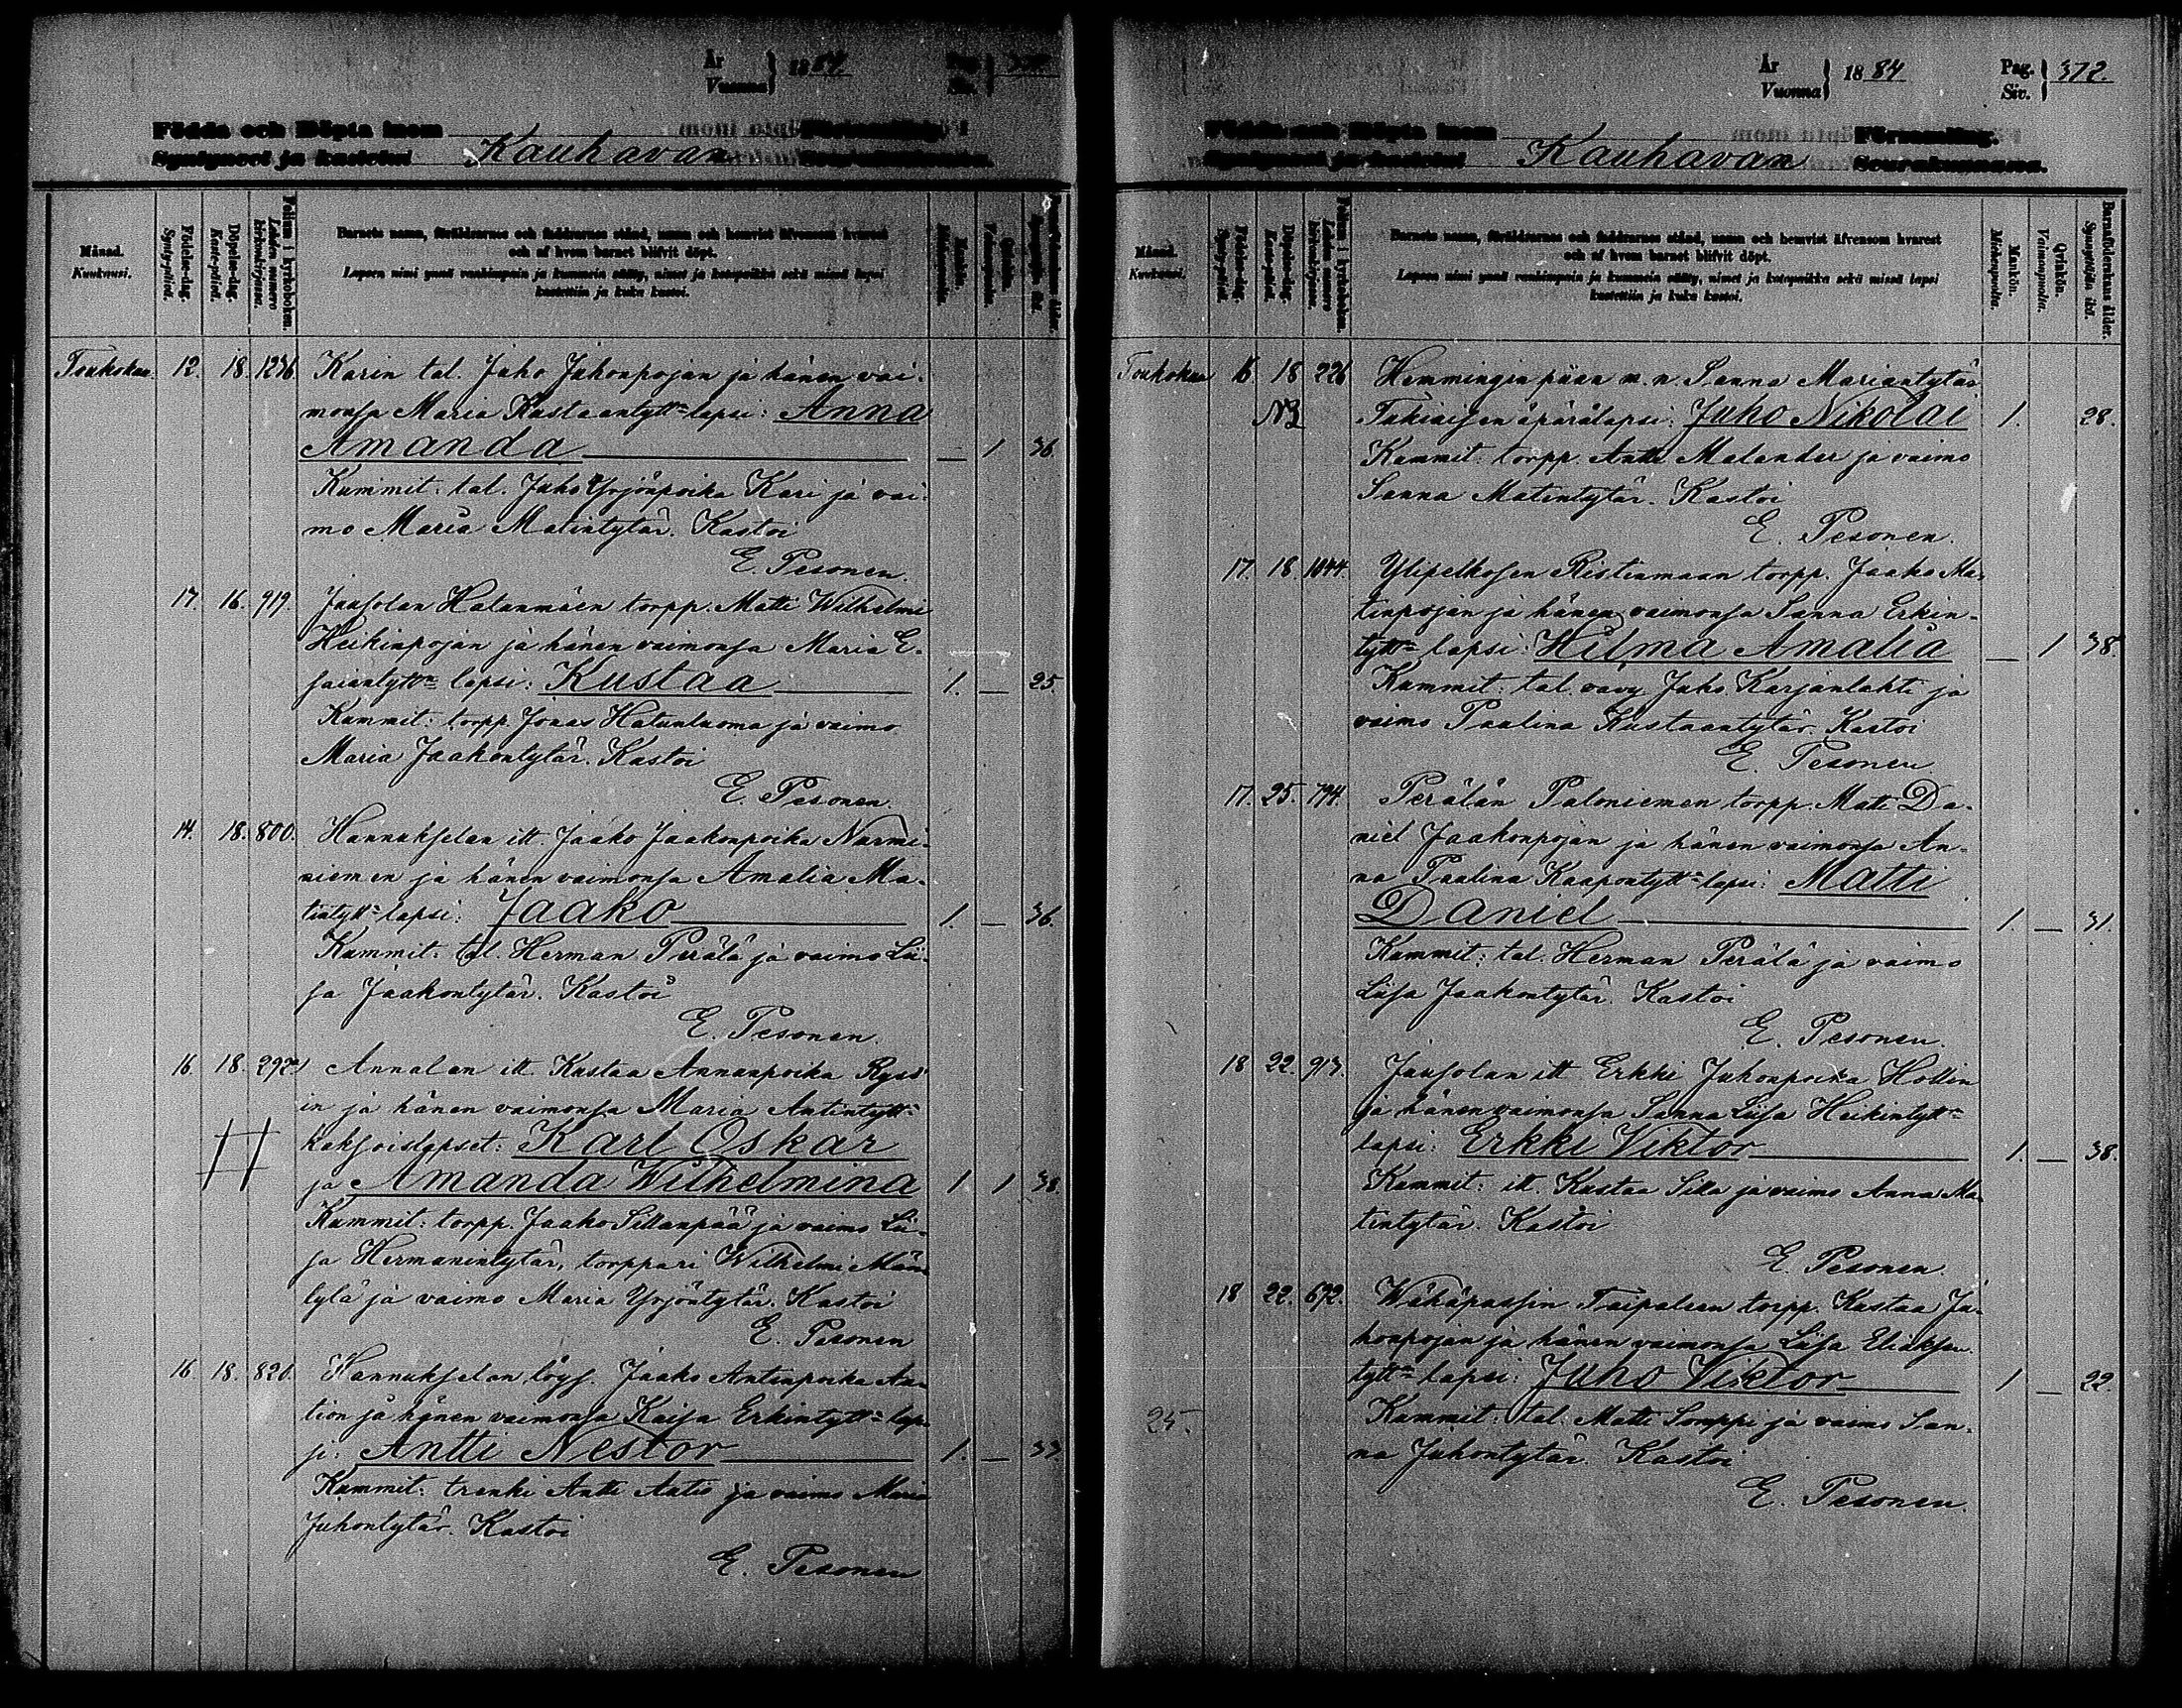 År
Vuonna
1884
Pag.
Siv.
Födda och Döpta inom
Församling.
Syntyneet ja kastetut Kauhavan Seurakunnassa.
Månad.
Kuukausi.
Födelse-dag.
Synty-päivä.
Döpelse-dag.
Kaste-päivä.
Folium i kyrkoboken.
Lehden numero kirkonkirjassa.
Barnets namn, föräldrarnes och faddrarnes stånd, namn och hemvist äfvensom hvarest
och af hvem barnet blifvit döpt.
Lapsen nimi ynnä vanhempain ja kummein sääty, nimet ja kotopaikka sekä missä lapsi
kastettiin ja kuka kastoi.
Mankön.
Miehenpuolta.
Qvinkön.
Vaimonpuolta.
Toukokuu. 12. 18. 1236. Karin tal. Juho Juhonpojan ja hänen vai-
monsa Maria Kustaantytt= lapsi: Anna
Amanda — 1 36.
Kummit: tal. Juho Yrjönpoika Kari ja vai-
mo Maria Matintytär. Kastoi
E. Pesonen.
17. 16. 919. Jausolan Hatunmäen torpp. Matti Wilhelmi
Heikinpojan ja hänen vaimonsa Maria E-
saiantytt= lapsi: Kustaa 1. — 25.
Kummit: torpp. Jonas Hatunluoma ja vaimo
Maria Jaakontytär. Kastoi
E. Pesonen.
14. 18. 800. Hannukselan itt. Jaako Jaakonpoika Nurmi-
niemen ja hänen vaimonsa Amalia Ma-
tintytt= lapsi: Jaako 1. — 36.
Kummit: tal. Herman Perälä ja vaimo Lii-
sa Jaakontytär. Kastoi
E. Pesonen.
16 18. 292 Annalan itt. Kustaa Annanpoika
in ja hänen vaimonsa Maria Antintytt=
kaksoislapset: Karl Oskar
ja Amanda Wilhelmina 1 1 38.
Kummit: torpp. Jaako Sillanpää ja vaimo Lii-
sa Hermanintytär, torppari Wilhelmi Män-
tylä ja vaimo Maria Yrjöntytär. Kastoi
E. Pesonen
16 18. 820. Hannukselan löys. Jaako Antinpoika An-
tion ja hänen vaimonsa Kaisa Erkintytt= lap-
si: Antti Nestor 1. — 33
Kummit: trenki Antti Antio ja vaimo Maria
Juhontytär. Kastoi
E. Pesonen
År
Vuonna
1884
Pag.
Siv.
372.
Födda och Döpta inom
Församling.
Syntyneet ja kastetut Kauhavan Seurakunnassa.
Månad.
Kuukausi.
Födelse-dag.
Synty-päivä.
Döpelse-dag.
Kaste-päivä.
Folium i kyrkoboken.
Lehden numero kirkonkirjassa.
Barnets namn, föräldrarnes och faddrarnes stånd, namn och hemvist äfvensom hvarest
och af hvem barnet blifvit döpt.
Lapsen nimi ynnä vanhempain ja kummein sääty, nimet ja kotopaikka sekä missä lapsi
kastettiin ja kuka kastoi.
Mankön.
Miehenpuolta.
Qvinkön.
Vaimonpuolta.
Barnaföderskans ålder.
Synnyttäjän ikä.
Toukokuu 16 18 226 Hemmingin pään n. n. Sanna Mariantytär
Takiaisen äpärälapsi: Juho Nikolai 1. 28.
Kummit: torpp. Antti Melander ja vaimo
Sanna Matintytär. Kastoi
E. Pesonen.
17. 18. 1044. Ylipelkosen Ristinmaan torpp. Jaako Ma-
tinpojan ja hänen vaimonsa Sanna Erkin-
tytt= lapsi: Hilma Amalia — 1 38.
Kummit: tal. vävy Juho Karjanlahti ja
vaimo Paulina Kustaantytär. Kastoi
E. Pesonen
17. 25. 794. Perälän Paloniemen torpp. Matti Da-
niel Jaakonpojan ja hänen vaimonsa An-
na Paulina Kaapontytt= lapsi: Matti
Daniel 1. — 31.
Kummit: tal. Herman Perälä ja vaimo
Liisa Jaakontytär. Kastoi
E. Pesonen.
18 22. 913. Jausolan itt Erkki Juhonpoika Hollin
ja hänen vaimonsa Sanna Liisa Heikintytt=
lapsi: Erkki Viktor 1. — 38.
Kummit: itt. Kustaa Silla ja vaimo Anna Ma-
tintytär. Kastoi
E. Pesonen.
18 22. 672. Wähäpassin Taipaleen torpp. Kustaa Ju-
honpojan ja hänen vaimonsa Liisa Eliaksen-
tytt= lapsi: Juho Viktor 1 — 22.
25. Kummit: tal. Matti Somppi ja vaimo San-
na Juhontytär. Kastoi
E. Pesonen.